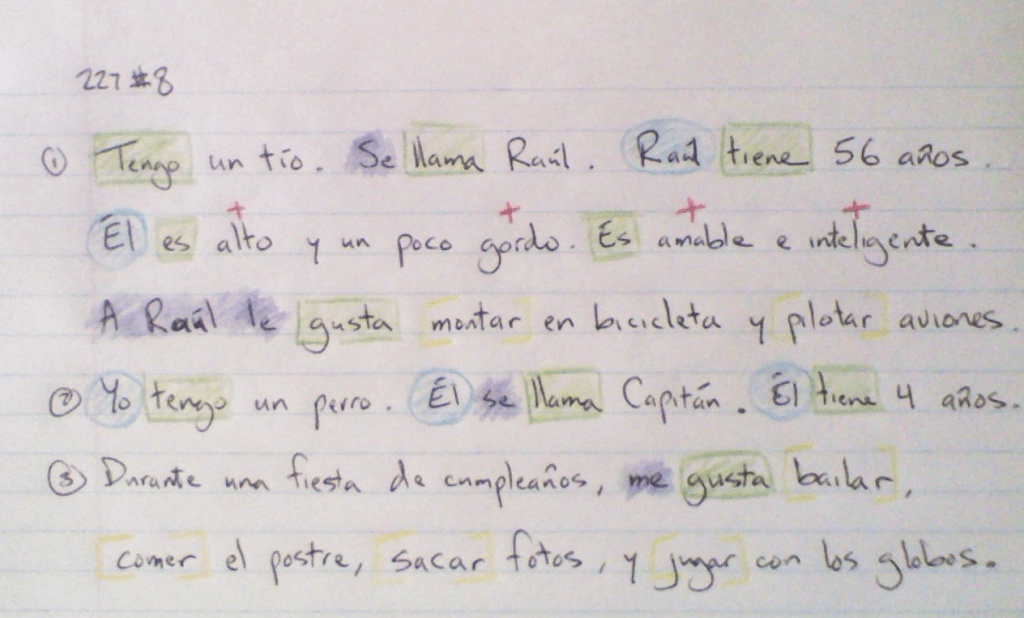 227 #8
① Tengo un tío. Se llama Raúl. Raúl tiene 56 años.
Él es alto y un poco gordo. Es amable e inteligente.
A Raúl le gusta montar en bicicleta y pilotar aviones.
② Yo tengo un perro. Él se llama Capitán. Él tiene 4 años.
③ Durante una fiesta de cumpleaños, me gusta bailar,
comer el postre, sacar fotos, y jugar con los globos.